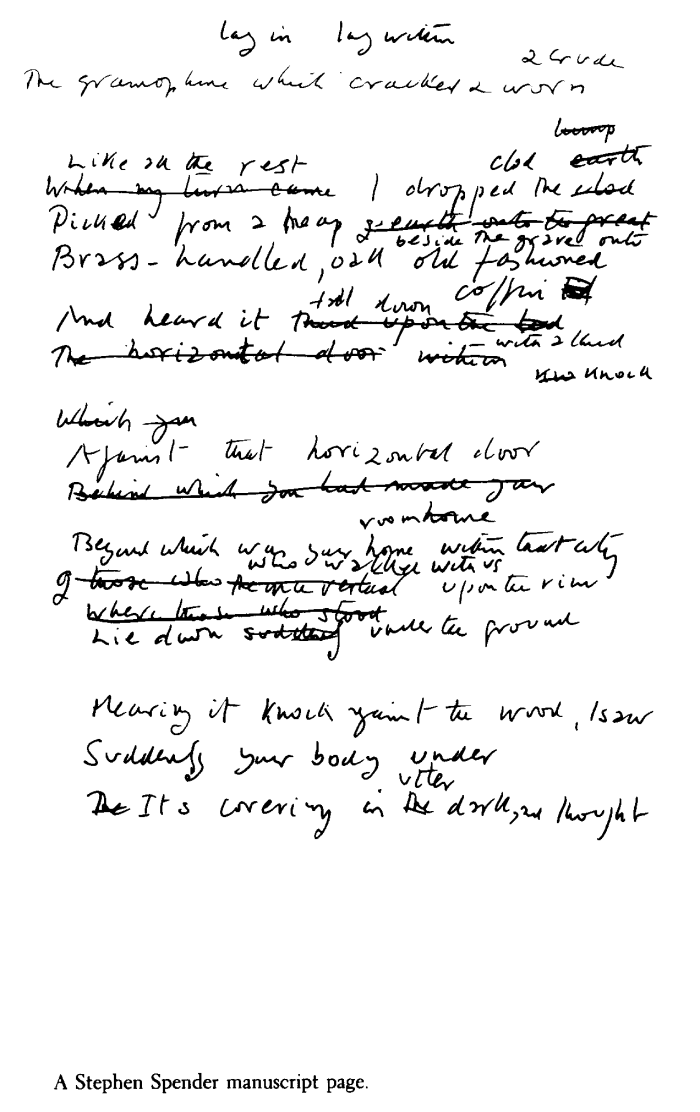 lay in lay within
a crude
The gramophone which crackled & worn
lump
Like all the rest clod earth
When my turn came I dropped the clod
Picked from a heap of earth onto the great
beside the grave onto
Brass-handled, oak old fashioned
coffin
fall down
And heard it thud upon the
The horizontal door within with a kind
knock
Which you
Against that horizontal door
Behind which you had made your
room home
Beyond which was your home within that city
who walked with us
of those who vertical upon the rim
Where those who stood
Lie down suddenly under the ground
Hearing it knock against the wood, I saw
Suddenly your body under
utter
The Its covering in the dark, and thought
A Stephen Spender manuscript page.